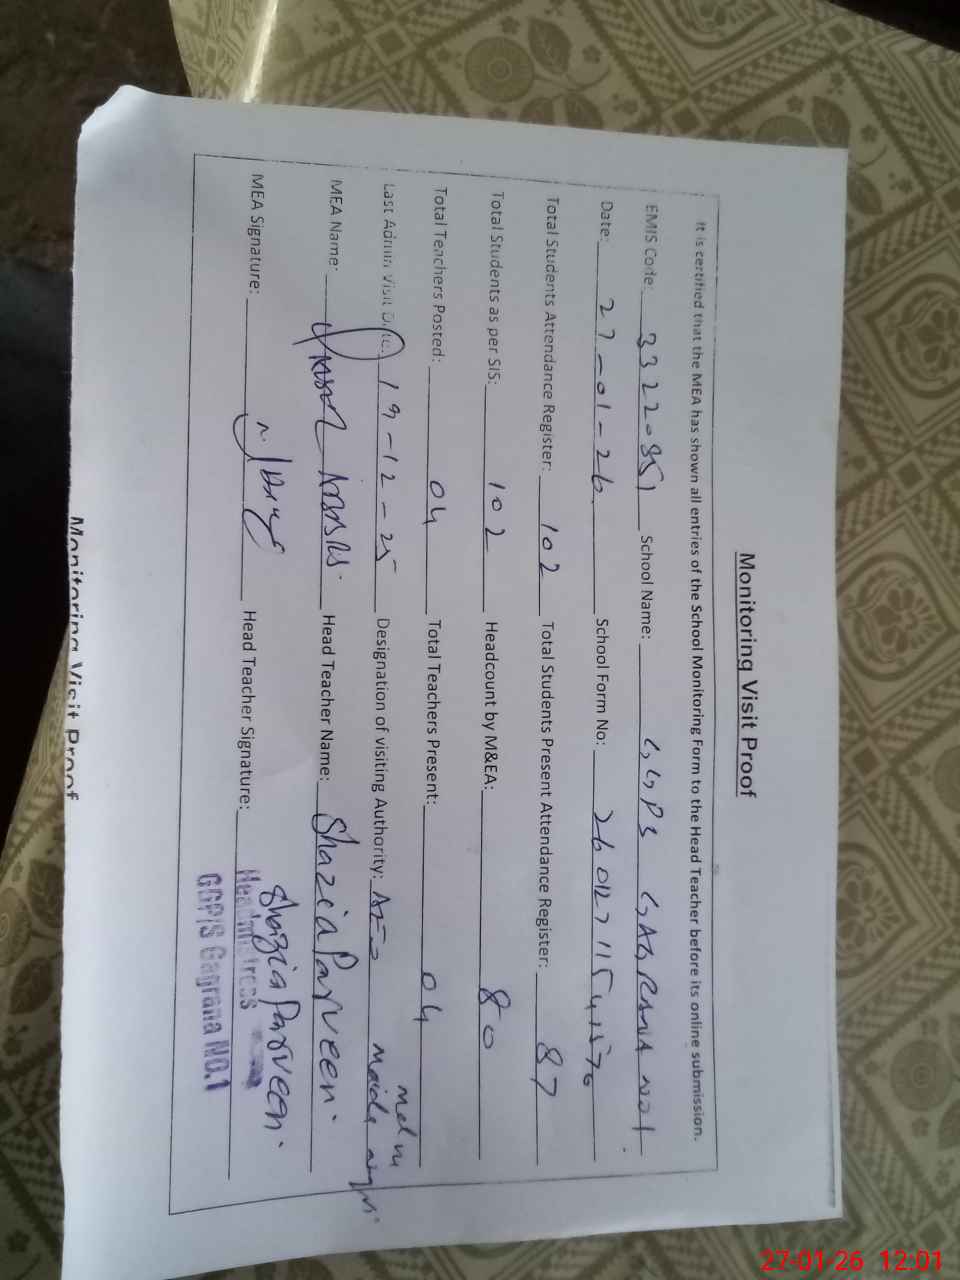 Monitoring Visit Proof
It is certified that the MEA has shown all entries of the School Monitoring Form to the Head Teacher before its online submission.
EMIS Code: 33220351 School Name: GGPS GAGRANA NO 1
Date: 27-01-26 School Form No:
Total Students Attendance Register: 102 Total Students Present Attendance Register: 87
Total Students as per SIS: 102 Headcount by M&EA: 80
Total Teachers Posted: 04 Total Teachers Present: 04
Last Admin Visit Date: 19-12-25 Designation of visiting Authority: AEO
MEA Name: Head Teacher Name: Shazia Parveen.
MEA Signature: Head Teacher Signature: Shazia Parveen.
Headmistress
GGP/S Gagrana NO.1
Monitoring Visit Proof
27-01-26 12:01